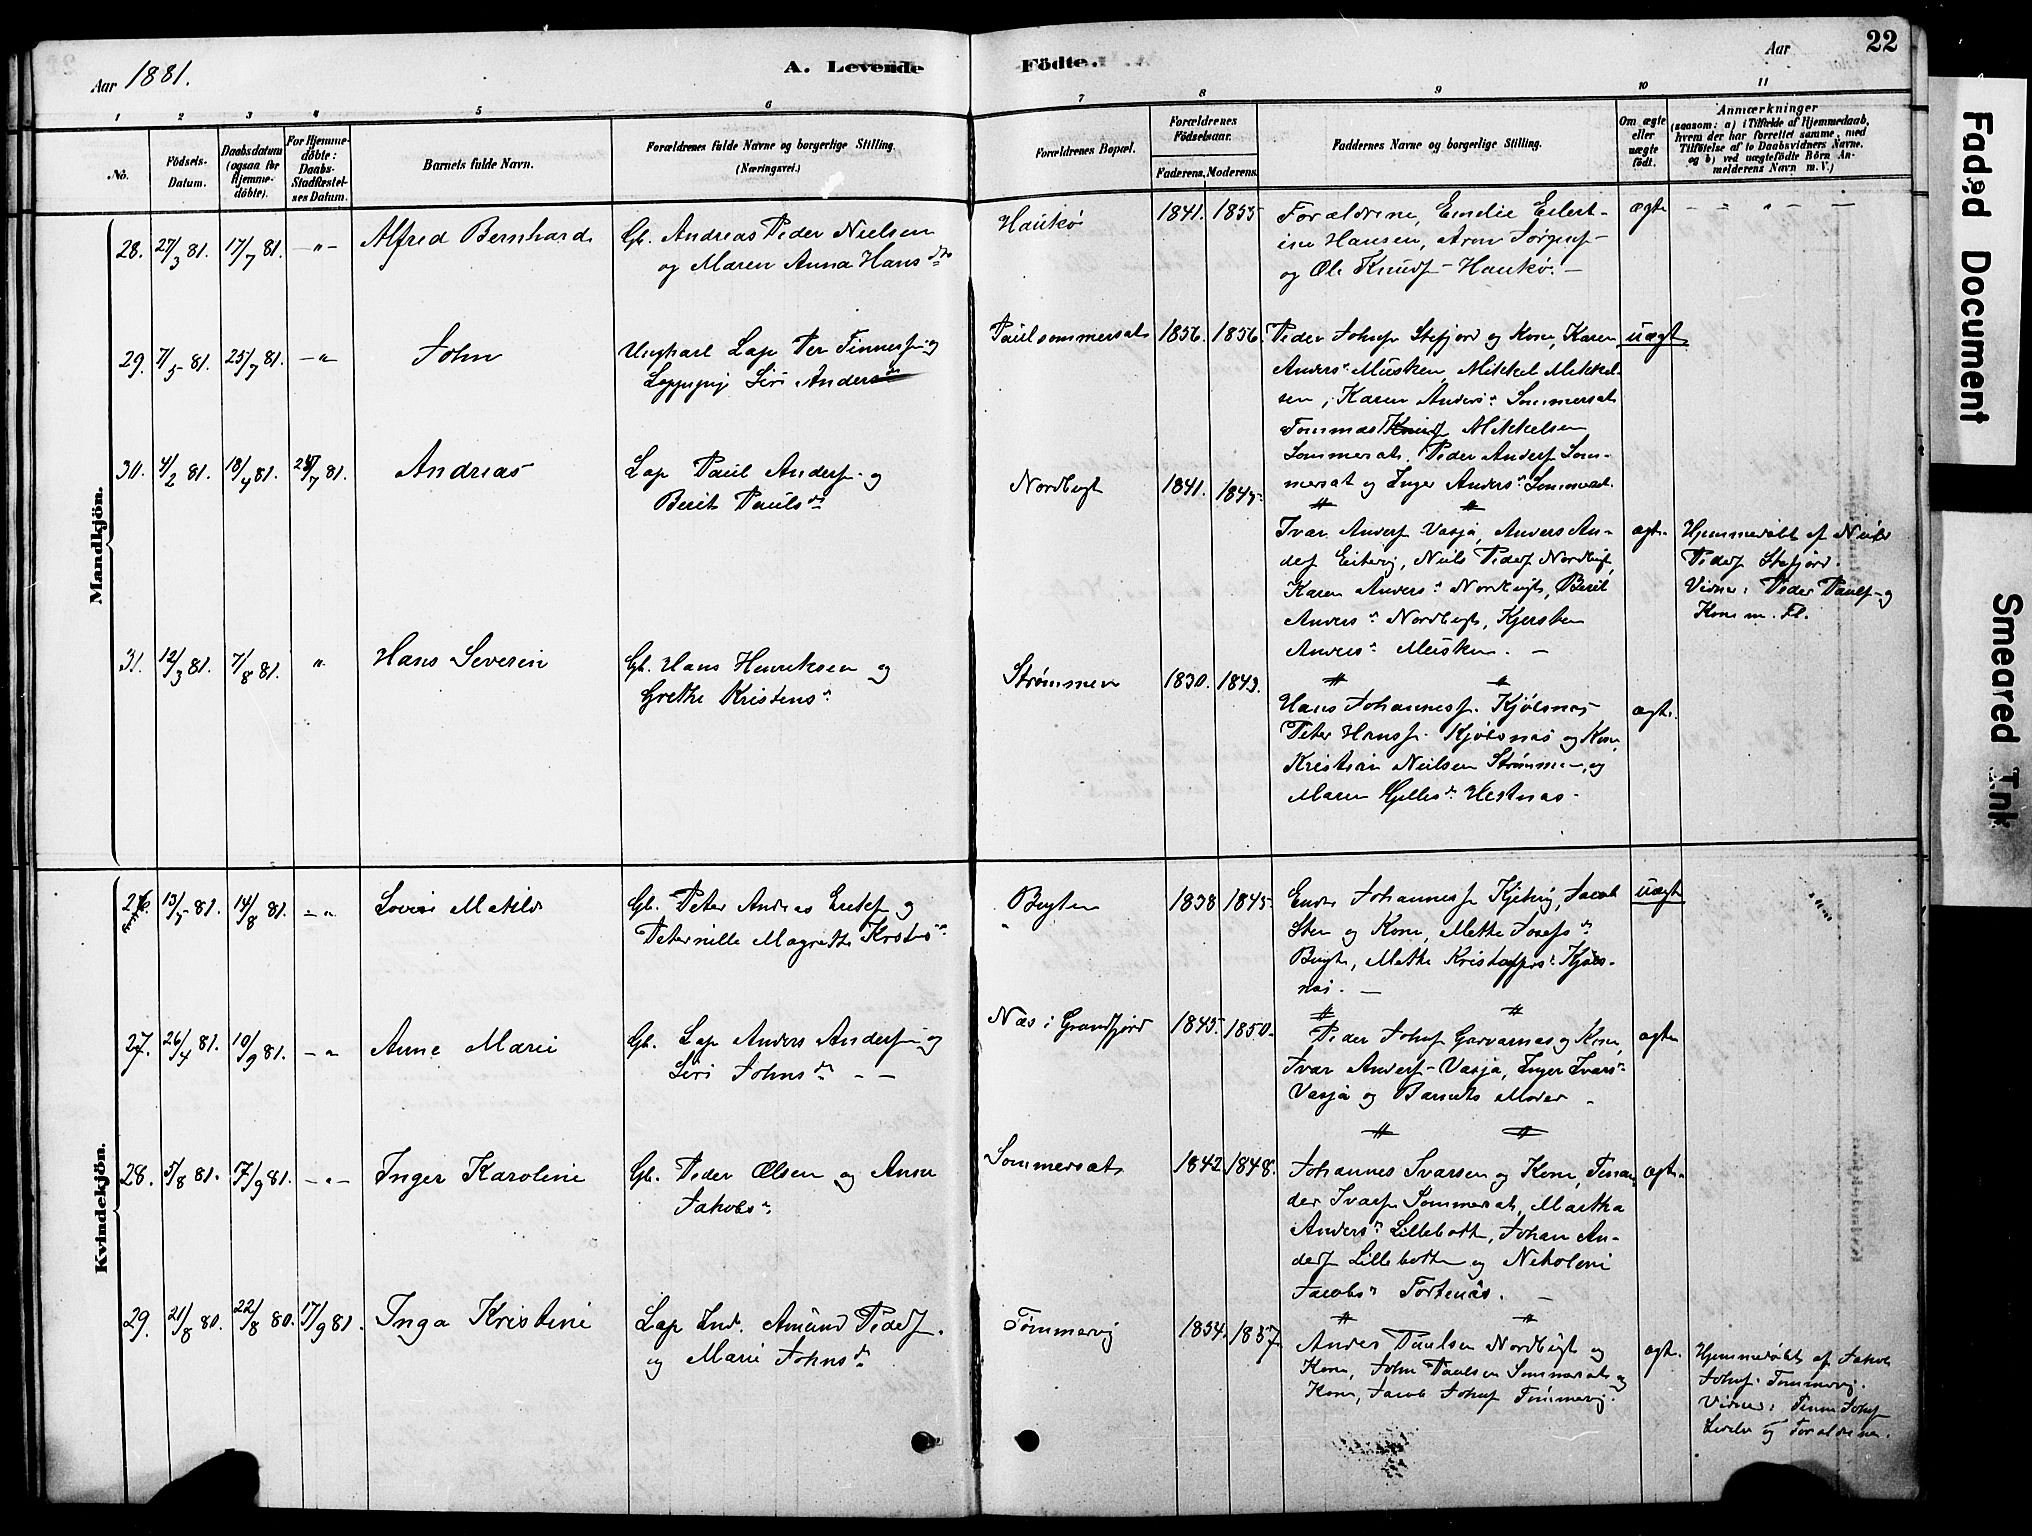 Aar 1881.
A. Levende
Födte.
Aar
22
1 2 3 4 5 6 7 8 9 10 11
No.
Födsels-
Datum.
Daabsdatum
(ogsaa for
Hjemme-
döbte).
For Hjemme-
döbte:
Daabs-
Stadfæstel-
ses Datum.
Barnets fulde Navn.
Forældrenes fulde Navne og borgerlige Stilling.
(Næringsvei.)
Forældrenes Bopæl.
Forældrenes
Födselsaar.
Faderens. Moderens.
Faddernes Navne og borgerlige Stilling.
Om ægte
eller
uægte
födt.
Anmærkninger
(saasom: a) i Tilfælde af Hjemmedaab,
hvem der har forrettet samme, med
Tilföielse af to Daabsvidners Navne.
og b) ved uægtefödte Börn An-
melderens Navn m.V.)
Mandkjön.
28. 27/3 81. 17/7 81. -"-
Alfred Bernhard
Gb. Andreas Peder Nielsen
og Maren Anna Hansdtr
Haukø
1841. 1855
Forældrene, Emilie Eilert-
ine Hansen, Aron
og Ole Knuds - Haukø. -
ægte
29. 7/5 81. 25/7 81. -"
John
Ungkarl Lap Per Finnes og
Lappepige Siri Anders
Paulsommersat
1856. 1856.
Peder Johns Stefjord og Kone, Karen
Anders Musken, Mikkel Mikkel-
sen, Karen Anders Sommersat
Tommas Knud Mikkelsen
Sommersat, Peder Anders Som-
mersat og Inger Anders Sommersat
uægte
30. 4/2 81. 18/4 81. 25/7 81.
Andreas
Lap Paul Anders og
Berit Pauls
Nordbugt
1841. 1845.
Ivar Anders Vasja, Anders An-
ders, Niels Peders Nordbugt,
Karen Anders Nordbugt, Berit
Anders Nordbugt, Kjersten
Anders Musken. -
ægte
Hjemmedøbt af Niels
Peders Stefjord.
Vidner: Peder Pauls og
Kone m. Fl.
31. 12/3 81. 7/8 81. "
Hans Severin
Gb. Hans Henriksen og
Grethe Kristens
Strømmen
1830. 1843.
Hans Johannes Kjølsnæs
Peter Hans Kjølsnæs og Kone,
Kristian Neilsen Strømmen, og
Maren Hestnæs.
ægte
Kvindekjön.
26. 13/5 81. 14/8 81. -"
Lovise Matild
Gb. Peter Andreas og
Peternille Magrethe
Bugten
1838 1845.
Johannes, Jacob
Sten og Kone, Mette Josefs
Bugt, Mette Kristoffers Kjøls-
næs. -
uægte
27. 26/4 81. 10/9 81. -"
Anne Marie
Gb. Lap Anders Anders og
Siri Johns - -
Næs i Grandfjord
1845. 1850.
Peder Johns og Kone,
Ivar Anders - Vasja, Inger Ivars
Vasja og Barnets Moder -
ægte
28. 5/8 81. 17/9 81. -"-
Inger Karoline
Gb. Peder Olsen og Anna
Jakobs
Sommersat
1842. 1848.
Johannes Ivarsen og Kone,
der Ivars Sommersat, Martha
Anders Lillebotn, Johan An-
ders Lillebotn og Nikoline
Jacobs Tortenæs. -
ægte
29. 21/8 80. 22/8 80. 17/9 81.
Inga Kristine
Lap Ind. Amund Peders
og Marie Johns
Tømmervig
1834. 1837.
Anders Paulsen Nordbugt og
Kone, John Paulsen Sommersat og
Kone, Jacob Johns Tømmervig.
ægte.
Hjemmedøbt af Jakob
Johns Tømmervig.
Vidner: Johns
og Forældrene.
Faded Document
Smeared Ink